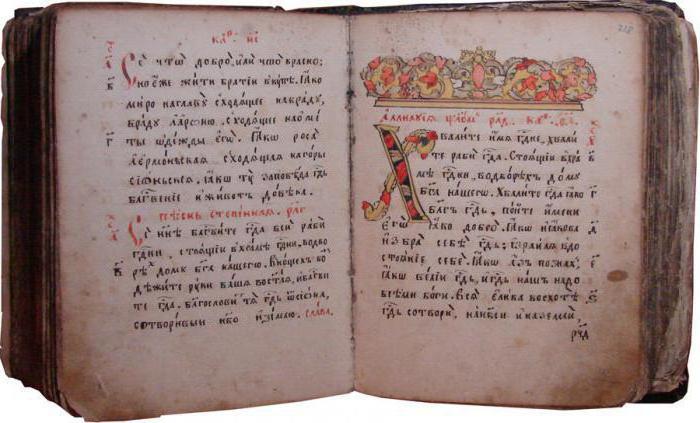 Се что̀ добро̀, и̑лѝ что̀ красно;
но е́же жи́ти бра́тїи вкꙋ́пѣ. Ꙗ҆́кѡ
мѵ́ро на главꙋ̀ сходѧ́щее на брадꙋ̀,
брадꙋ̀ а҆арѡ́ню. сходѧ́щее на ѡ҆ме́
ты ѻ҆де́жды є҆гѡ̀. Ꙗ҆́кѡ роса̀
а҆ермо́ньскаѧ сходѧ́щаѧ на го́ры
сїѡ́ньскїѧ. ꙗ҆́кѡ тꙋ̀ заповѣ́да гд҇ь
бл҃гвенїе и҆ живо́тъ до вѣ́ка.
Пѣ́снь степе́ннаѧ. рл҃г
Се нн҃ѣ бл҃гви́те гд҇а всѝ рабѝ
гд҇ни, стоѧ́щїи в хра́мѣ гд҇ни, во дво
рѣ́х до́мꙋ бг҃а на́шегѡ. В но́щехъ во
дѣжи́те рꙋ́ки ва́шѧ во ст҃а́ѧ, и҆ бл҃гви
те гд҇а. бл҃гослови́ тѧ гд҇ь ѿ сїѡ́на,
сотвори́вый нб҃о и҆ зе́млю. Сла́ва.
218
А҆ллилꙋ́їа ѱало́мъ рл҃д.
Хвали́те и҆́мѧ гд҇не, хвали́
те рабѝ гд҇а. Стоѧ́щїи в хра́
мѣ гд҇ни, во дво́рѣхъ до́мꙋ
бг҃а на́шегѡ. Хвали́те гд҇а ꙗ҆́кѡ
бл҃гъ гд҇ь, по́йте и҆́мени
є҆гѡ̀ ꙗ҆́кѡ добро̀. Ꙗ҆́кѡ і҆а́кова
и҆збра̀ себѣ̀ гд҇ь; і҆зра́илѧ в до
стоѧ́нїе себѣ̀. Ꙗ҆́кѡ а҆́зъ позна́хъ,
ꙗ҆́кѡ ве́лїи гд҇ь, и҆ гд҇ь на́шъ надо
всѣ́ми бо́ги. Всѧ̑ є҆ли́ка восхотѣ̀
гд҇ь сотворѝ, на нб҃сѝ и҆ на землѝ,